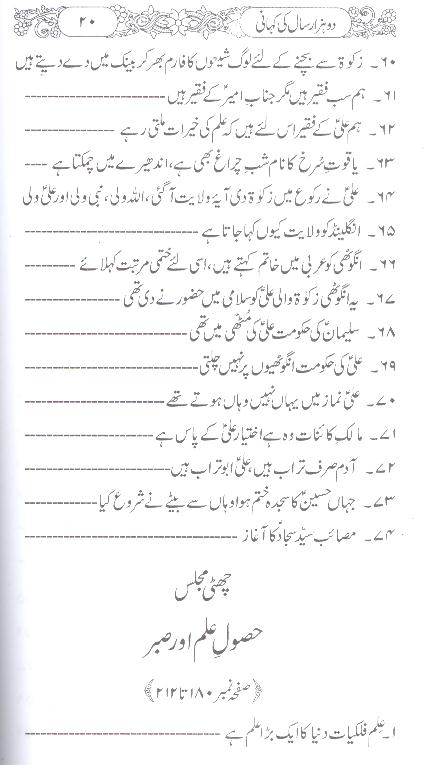 دو ہزار سال کی کہانی ۲۰
۶۰۔ زکوٰۃ سے بچنے کے لئے لوگ شیعوں کا فارم بھر کر بینک میں دے دیتے ہیں
۶۱۔ ہم سب فقیر ہیں مگر جنابِ امیرؑ کے فقیر ہیں ------------------
۶۲۔ ہم علیؑ کے فقیر اس لئے ہیں کہ علم کی خیرات ملتی رہے ------------
۶۳۔ یاقوتِ سُرخ کا نام شب چراغ بھی ہے، اندھیرے میں چمکتا ہے ----
۶۴۔ علیؑ نے رکوع میں زکوٰۃ دی آیۂ ولایت آ گئی، اللہ ولی، نبی ولی اور علیؑ ولی
۶۵۔ انگلینڈ کو ولایت کیوں کہا جاتا ہے ----------------------
۶۶۔ انگوٹھی کو عربی میں خاتم کہتے ہیں، اسی لئے ختمی مرتبت کہلائے -------
۶۷۔ یہ انگوٹھی زکوٰۃ والی علیؑ کو سلامی میں حضورؐ نے دی تھی -----------
۶۸۔ سلیمانؑ کی حکومت علیؑ کی مُٹھی میں تھی --------------------
۶۹۔ علیؑ کی حکومت انگوٹھیوں پر نہیں چلتی --------------------
۷۰۔ علیؑ نماز میں یہاں نہیں وہاں ہوتے تھے ------------------
۷۱۔ مالکِ کائنات وہ ہے اختیار علیؑ کے پاس ہے ----------------
۷۲۔ آدم صرف تراب ہیں، علیؑ ابو تراب ہیں ------------------
۷۳۔ جہاں حسینؑ کا سجدہ ختم ہوا وہاں سے بیٹے نے شروع کیا ----------
۷۴۔ مصائب سیّد سجادؑ کا آغاز --------------------------
چھٹی مجلس
حصولِ علم اور صبر
﴿صفحہ نمبر ۱۸۰ تا ۲۱۲﴾
۱۔ علمِ فلکیات دنیا کا ایک بڑا علم ہے ------------------------